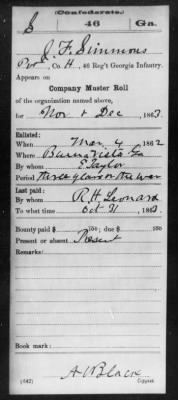 (Confederate.)
S 46 Ga.
J. F. Simmons
Pvt, Co. H, 46 Reg't Georgia Infantry.
Appears on
Company Muster Roll
of the organization named above,
for Nov & Dec, 1863.
Enlisted:
When Mar 4, 1862
Where Buena Vista Ga
By whom E Taylor
Period three years or the war
Last paid:
By whom R. H. Leonard
To what time Oct 31, 1863.
Bounty paid $ 100; due $ 100
Present or absent Present
Remarks:
Book mark:
A W Black
(642) Copyist.